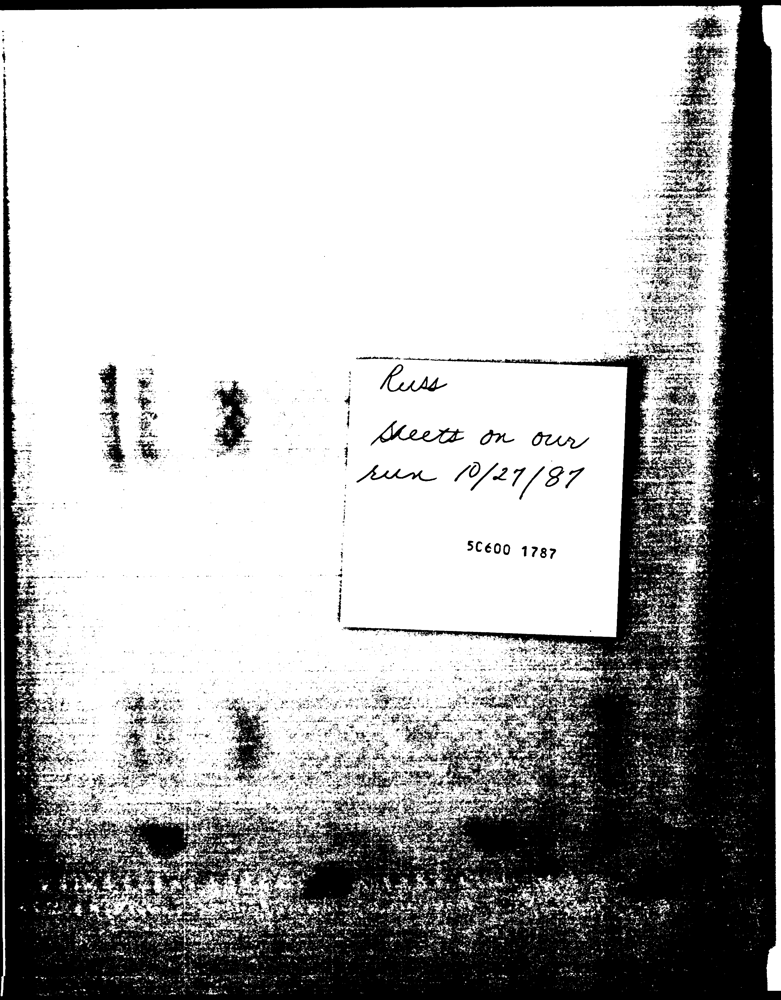 Russ
Sheets on our
run 10/27/87
5C600 1787